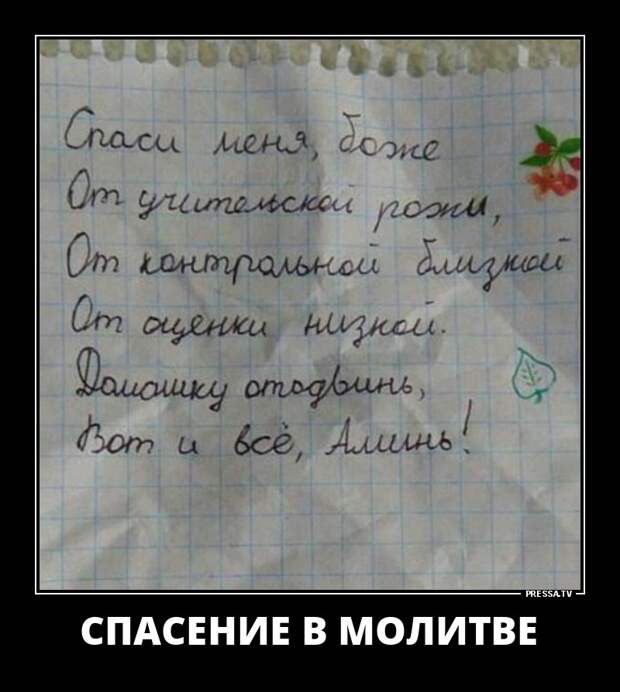 Спаси меня, боже
От учительской рожи,
От контрольной близкой
От оценки низкой.
Домашку отодвинь,
Вот и всё, Аминь!
PRESSA.TV
СПАСЕНИЕ В МОЛИТВЕ